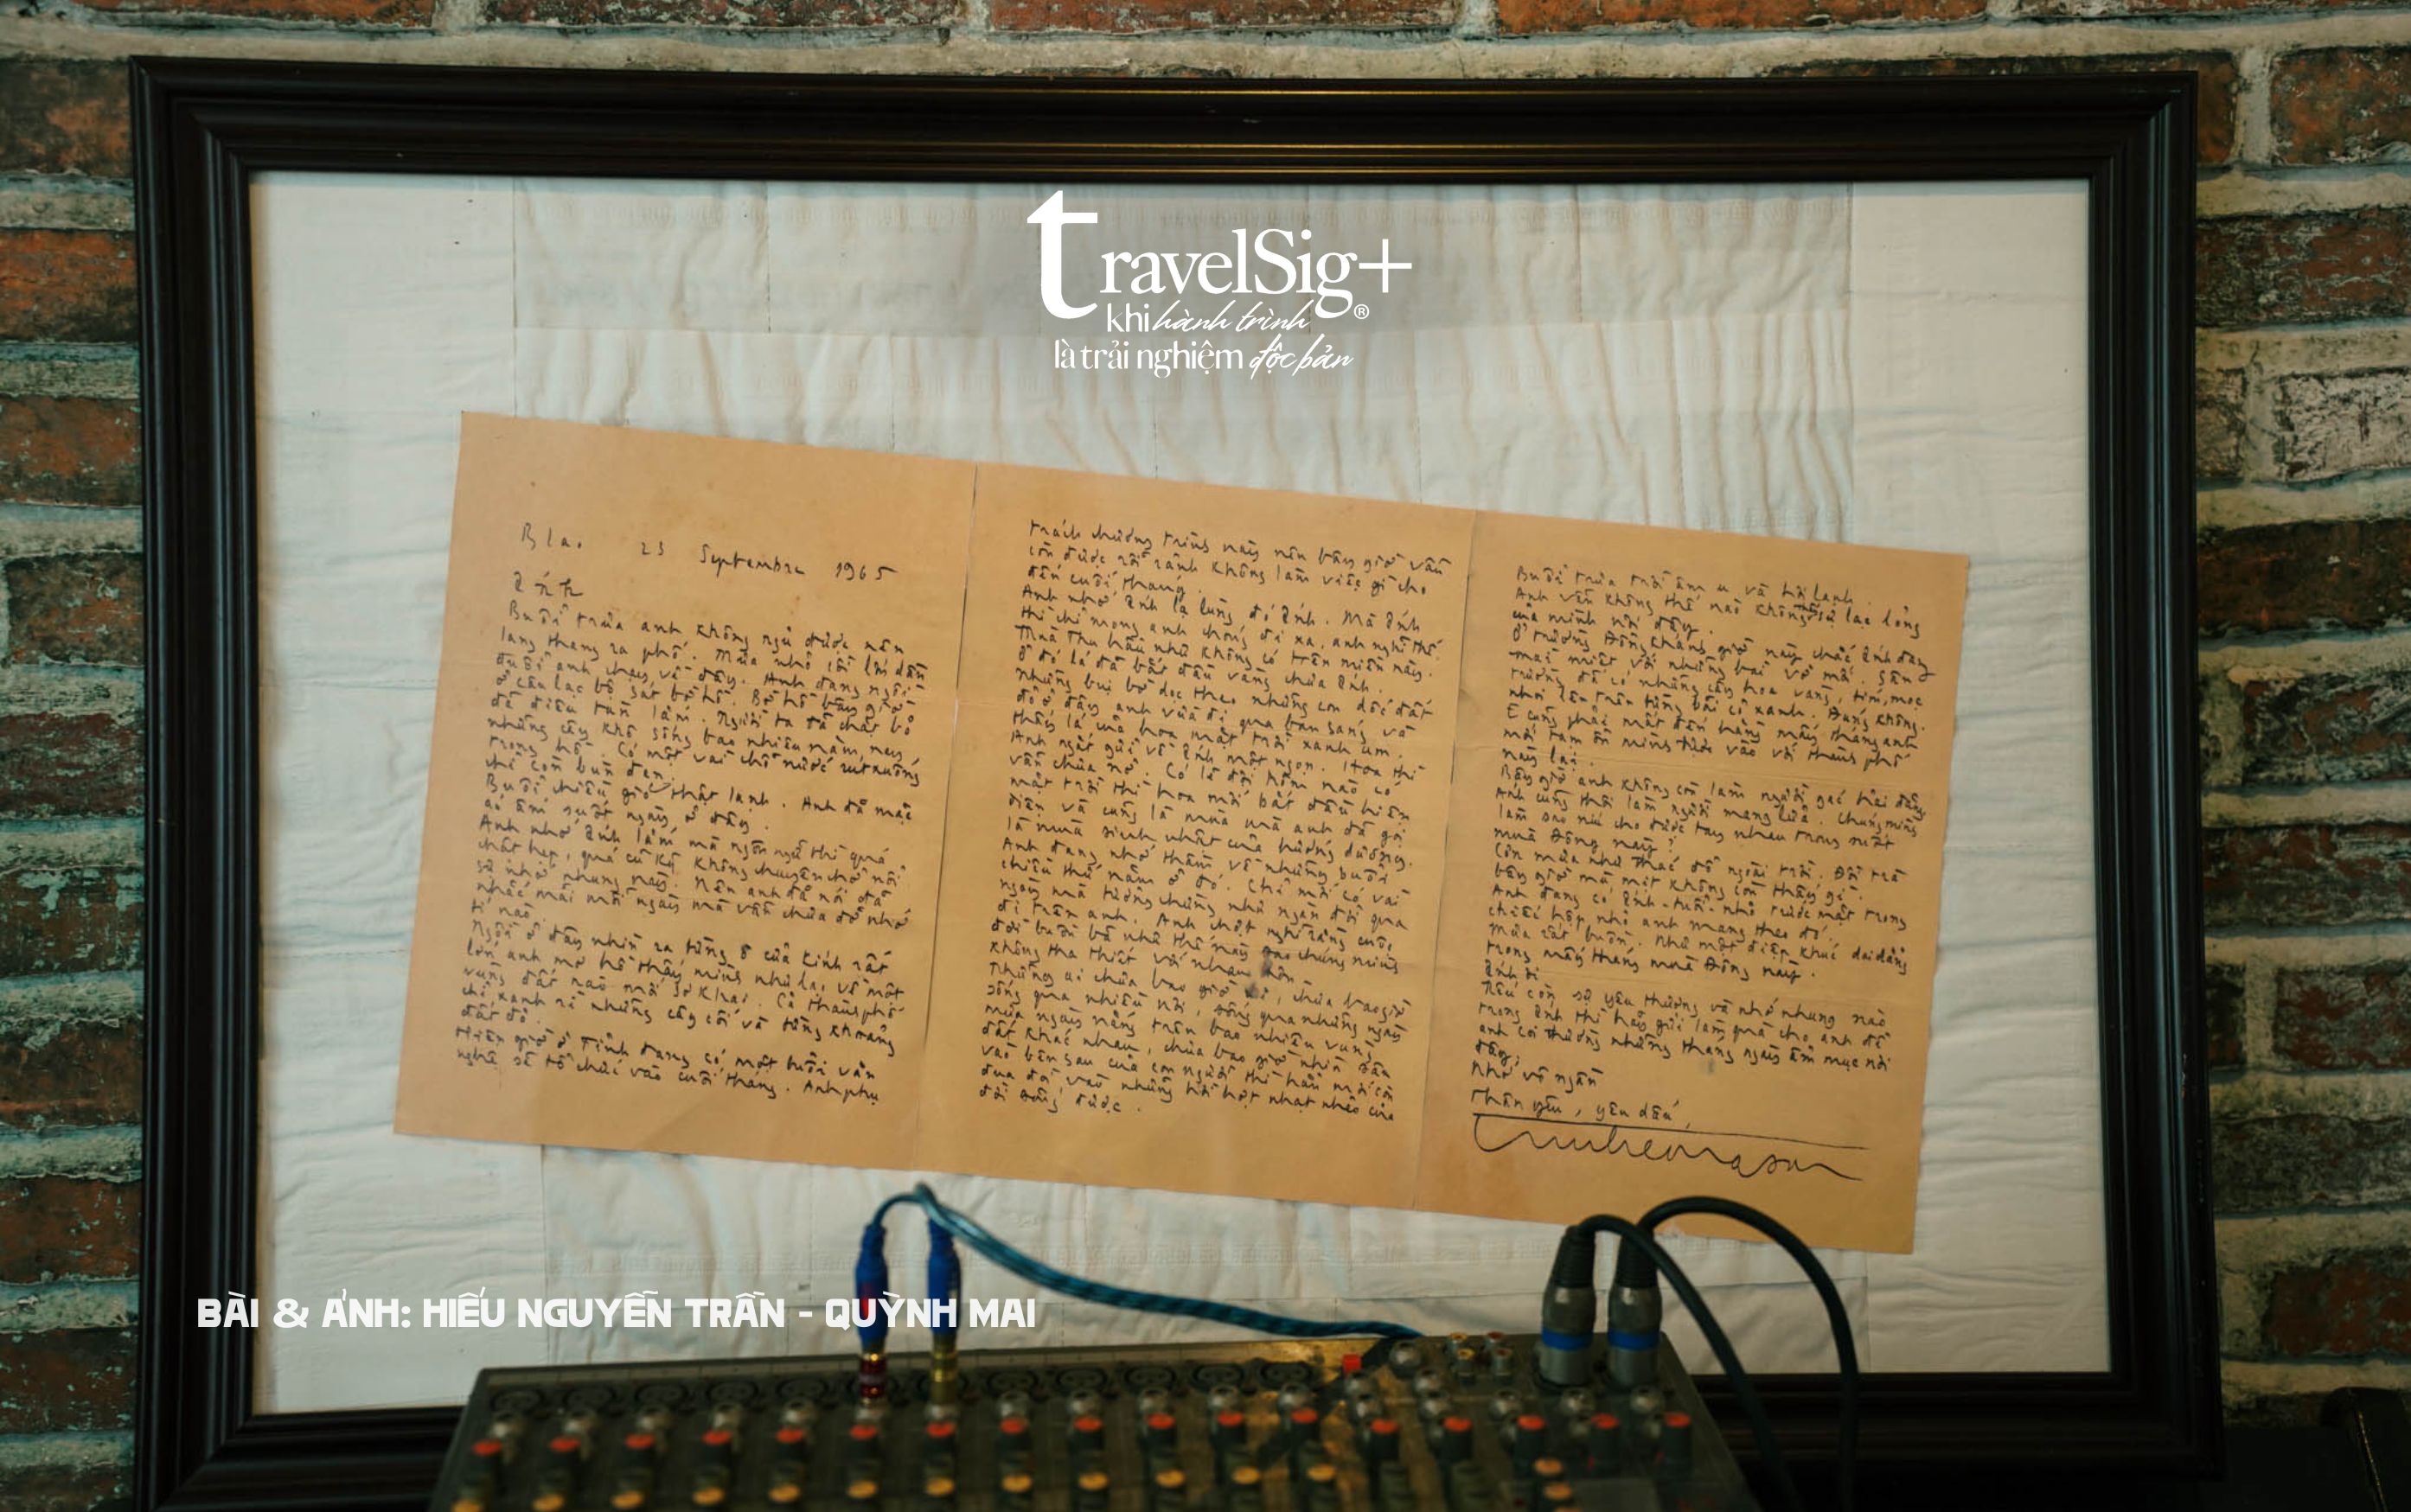 travelSig+
khi hành trình ®
là trải nghiệm độc bản
Blao 23 Septembre 1965
Ánh
Buổi trưa anh không ngủ được nên
lang thang ra phố. Mưa nhỏ rồi lớn dần
đuổi anh chạy về đây. Anh đang ngồi
ở câu lạc bộ sát bờ hồ. Bờ hồ bây giờ
đã điêu tàn lắm. Người ta đã chặt bỏ
những cây khô sống bao nhiêu năm nay
trong hồ. Có một vài chỗ nước rút xuống
chỉ còn bùn đen.
Buổi chiều gió thật lạnh. Anh đã mặc
áo ấm suốt ngày ở đây.
Anh nhớ Ánh lắm mà ngôn ngữ thì quá
chật hẹp, quá cũ kỹ không chuyên chở nổi
sự nhớ nhung này. Nên anh đã nói đã
nhắc mãi mỗi ngày mà vẫn chưa đỡ nhớ
tí nào.
Ngồi ở đây nhìn ra từng ô cửa kính rất
lớn anh mơ hồ thấy mình như lạc về một
vùng đất nào mới sơ khai. Cả thành phố
chỉ xanh rì những cây cối và từng khoảng
đất đỏ.
Hiện giờ ở Tỉnh đang có một hội văn
nghệ sẽ tổ chức vào cuối tháng. Anh phụ
trách chương trình này nên bây giờ vẫn
còn được rỗi rảnh không làm việc gì cho
đến cuối tháng.
Anh nhớ Ánh lạ lùng đó Ánh. Mà Ánh
thì chỉ mong anh chóng đi xa, anh nghĩ thế.
Mùa Thu hầu như không có trên miền này.
Ở đó lá đã bắt đầu vàng chưa Ánh.
Những bụi bờ dọc theo những con dốc đất
đỏ ở đây anh vừa đi qua ban sáng và
thấy lá của hoa mặt trời xanh um.
Anh ngắt gửi về Ánh một ngọn. Hoa thì
vẫn chưa nở. Có lẽ đợi hôm nào có
mặt trời thì hoa mới bắt đầu hiện
diện và cũng là mùa mà anh đã gọi
là mùa sinh nhật của hướng dương.
Anh đang nhớ thầm về những buổi
chiều thứ năm ở đó. Chỉ mới có vài
ngày mà tưởng chừng như ngàn đời qua
đi trên anh. Anh chợt nghĩ rằng cuộc
đời buồn bã như thế này sao chúng mình
không tha thiết với nhau hơn.
Những ai chưa bao giờ đi, chưa bao giờ
sống qua nhiều nơi, sống qua những ngày
mưa ngày nắng trên bao nhiêu vùng
đất khác nhau, chưa bao giờ nhìn sâu
vào bên sau của con người thì hẳn mới còn
đua đòi vào những hời hợt nhạt nhẽo của
đời sống được.
Buổi trưa trời âm u và hơi lạnh.
Anh vẫn không thế nào không thấy sự lạc lõng
của mình nơi đây.
Ở trường Đồng Khánh giờ này chắc Ánh đang
mải miết với những bài vở mới. Sân
trường đã có những cây hoa vàng, tím, mọc
nhoi lên trên từng bãi cỏ xanh. Đúng không.
E cũng phải mất đến hàng mấy tháng anh
mới tạm ổn mình được vào với thành phố
này lại.
Bây giờ anh không còn làm người gác hải đăng.
Ánh cũng thôi làm người mang lửa. Chúng mình
làm sao níu cho được tay nhau trong suốt
mùa Đông này?
Cơn mưa như thác đổ ngoài trời. Đồi trà
bây giờ mù mịt không còn thấy gì.
Anh đang có Ánh-tuổi-nhỏ trước mặt trong
chiếc hộp nhỏ anh mang theo đó.
Mưa rất buồn. Như một điệp khúc dai dẳng
trong mấy tháng mùa Đông này.
Ánh ơi
Nếu còn sự yêu thương và nhớ nhung nào
trong Ánh thì hãy gửi làm quà cho anh để
anh coi thường những tháng ngày ẩm mục nơi
đây.
Nhớ vô ngần
Thân yêu, yêu dấu,
Trinhcongson
BÀI & ẢNH: HIẾU NGUYỄN TRẦN - QUỲNH MAI